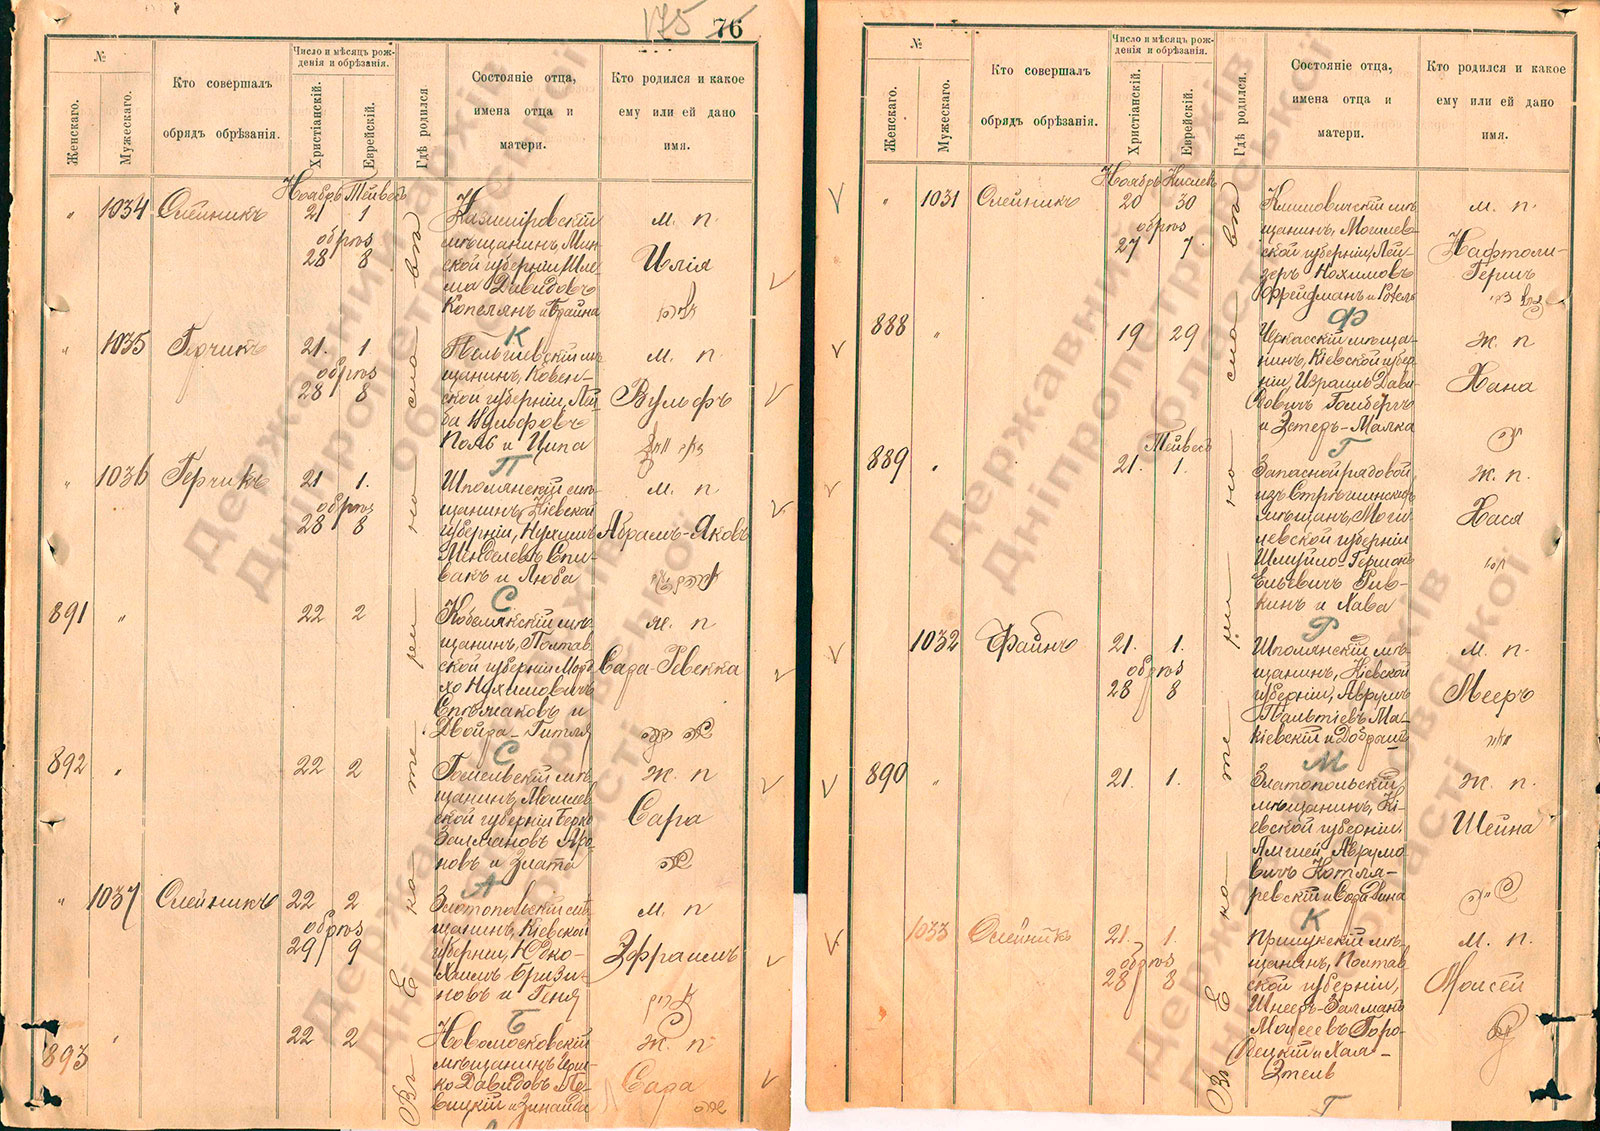 175 76
№
Женскаго.
Мужескаго.
Кто совершалъ
обрядъ обрѣзанія.
Число и мѣсяцъ рож-
денія и обрѣзанія.
Христіанскій.
Еврейскій.
Гдѣ родился
Состояніе отца,
имена отца и
матери.
Кто родился и какое
ему или ей дано
имя.
Ноябрь Тейвесъ
" 1034 Олейникъ 21 1
обрѣз
28 8
Казимировскій
мѣщанинъ Мин-
ской губерніи Шле-
ма Давидовъ
Копелянъ и Брайна
м. п.
Илія
К
" 1035 Герчикъ 21. 1
обрѣз
28 8
мѣ-
щанинъ, Ковен-
ской губерніи, Лей-
ба Вульфовъ
Поль и Ципа
м. п.
Вульфъ
П
" 1036 Герчикъ 21 1.
обрѣз
28 8
Шполянскій мѣ-
щанинъ, Кіевской
губерніи, Нухимъ
Менделевъ Спи-
вакъ и Люба
м. п
Абрамъ-Яковъ
С
891 " 22 2
Кобелякскій мѣ-
щанинъ, Полтав-
ской губерніи Морд-
хо Нухимовичъ
и
Двойра-Гитля
ж. п
Сара-Ревекка
С
892 " 22 2
Гомельскій мѣ-
щанинъ, Могилев
ской губерніи Берко
Залмановъ Аро-
новъ и Злата
ж. п
Сара
А
" 1037 Олейникъ 22 2
обрѣз
29 9
Златопольскій мѣ-
щанинъ, Кіевской
губерніи, Юдко-
Хаимъ Бризи-
новъ и Геня
м. п
Эфраимъ
Б
893 " 22 2
Новомосковскій
мѣщанинъ Герш-
ко Давидовъ Ле-
вицкій и Зинаида
ж. п
Сара
Въ г. Екатеринославѣ
№
Женскаго.
Мужескаго.
Кто совершалъ
обрядъ обрѣзанія.
Число и мѣсяцъ рож-
денія и обрѣзанія.
Христіанскій.
Еврейскій.
Гдѣ родился.
Состояніе отца,
имена отца и
матери.
Кто родился и какое
ему или ей дано
имя.
Ноябрь Кислевъ
" 1031 Олейникъ 20 30
обрѣз
27 7
Климовичскій мѣ-
щанинъ, Могилев-
ской губерніи, Лей-
зеръ Нохимовъ
Фрейдманъ и Рохель
м. п.
Нафтоли-
Гершъ
Ф
888 " 19 29
Черкасскій мѣща-
нинъ, Кіевской губер-
ніи, Израиль Дави-
довичъ Гомбергъ
и Эстеръ-Малка
ж. п
Хана
Г
Тейвесъ
889 " 21. 1.
Запасной рядовой
изъ Стрѣшинскихъ
мѣщанъ, Моги-
левской губерніи
Шмуйло-Гершонъ
Ельевичъ Рив-
кинъ и Хава
ж. п.
Хася
Р
1032 Файнъ 21. 1.
обрѣз
28 8
Шполянскій мѣ-
щанинъ, Кіевской
губерніи, Аврумъ
Пальтіевъ Ма-
кіевскій и Добрашъ
м. п.
Мееръ
М
890 " 21. 1.
Златопольскій
мѣщанинъ, Кі-
евской губерніи
Аврумо-
вичъ Котля-
ревскій и Сора Двина
ж. п.
Шейна
К
1033 Олейникъ 21. 1.
обрѣз
28 8
Прилукскій мѣ-
щанинъ, Полтав
ской губерніи,
Шнееръ-Залманъ
Моисеевъ Горо-
децкій и Хая-
Этель
м. п.
Моисей
Г
Въ г. Екатеринославѣ
Державний архів
Дніпропетровської
області